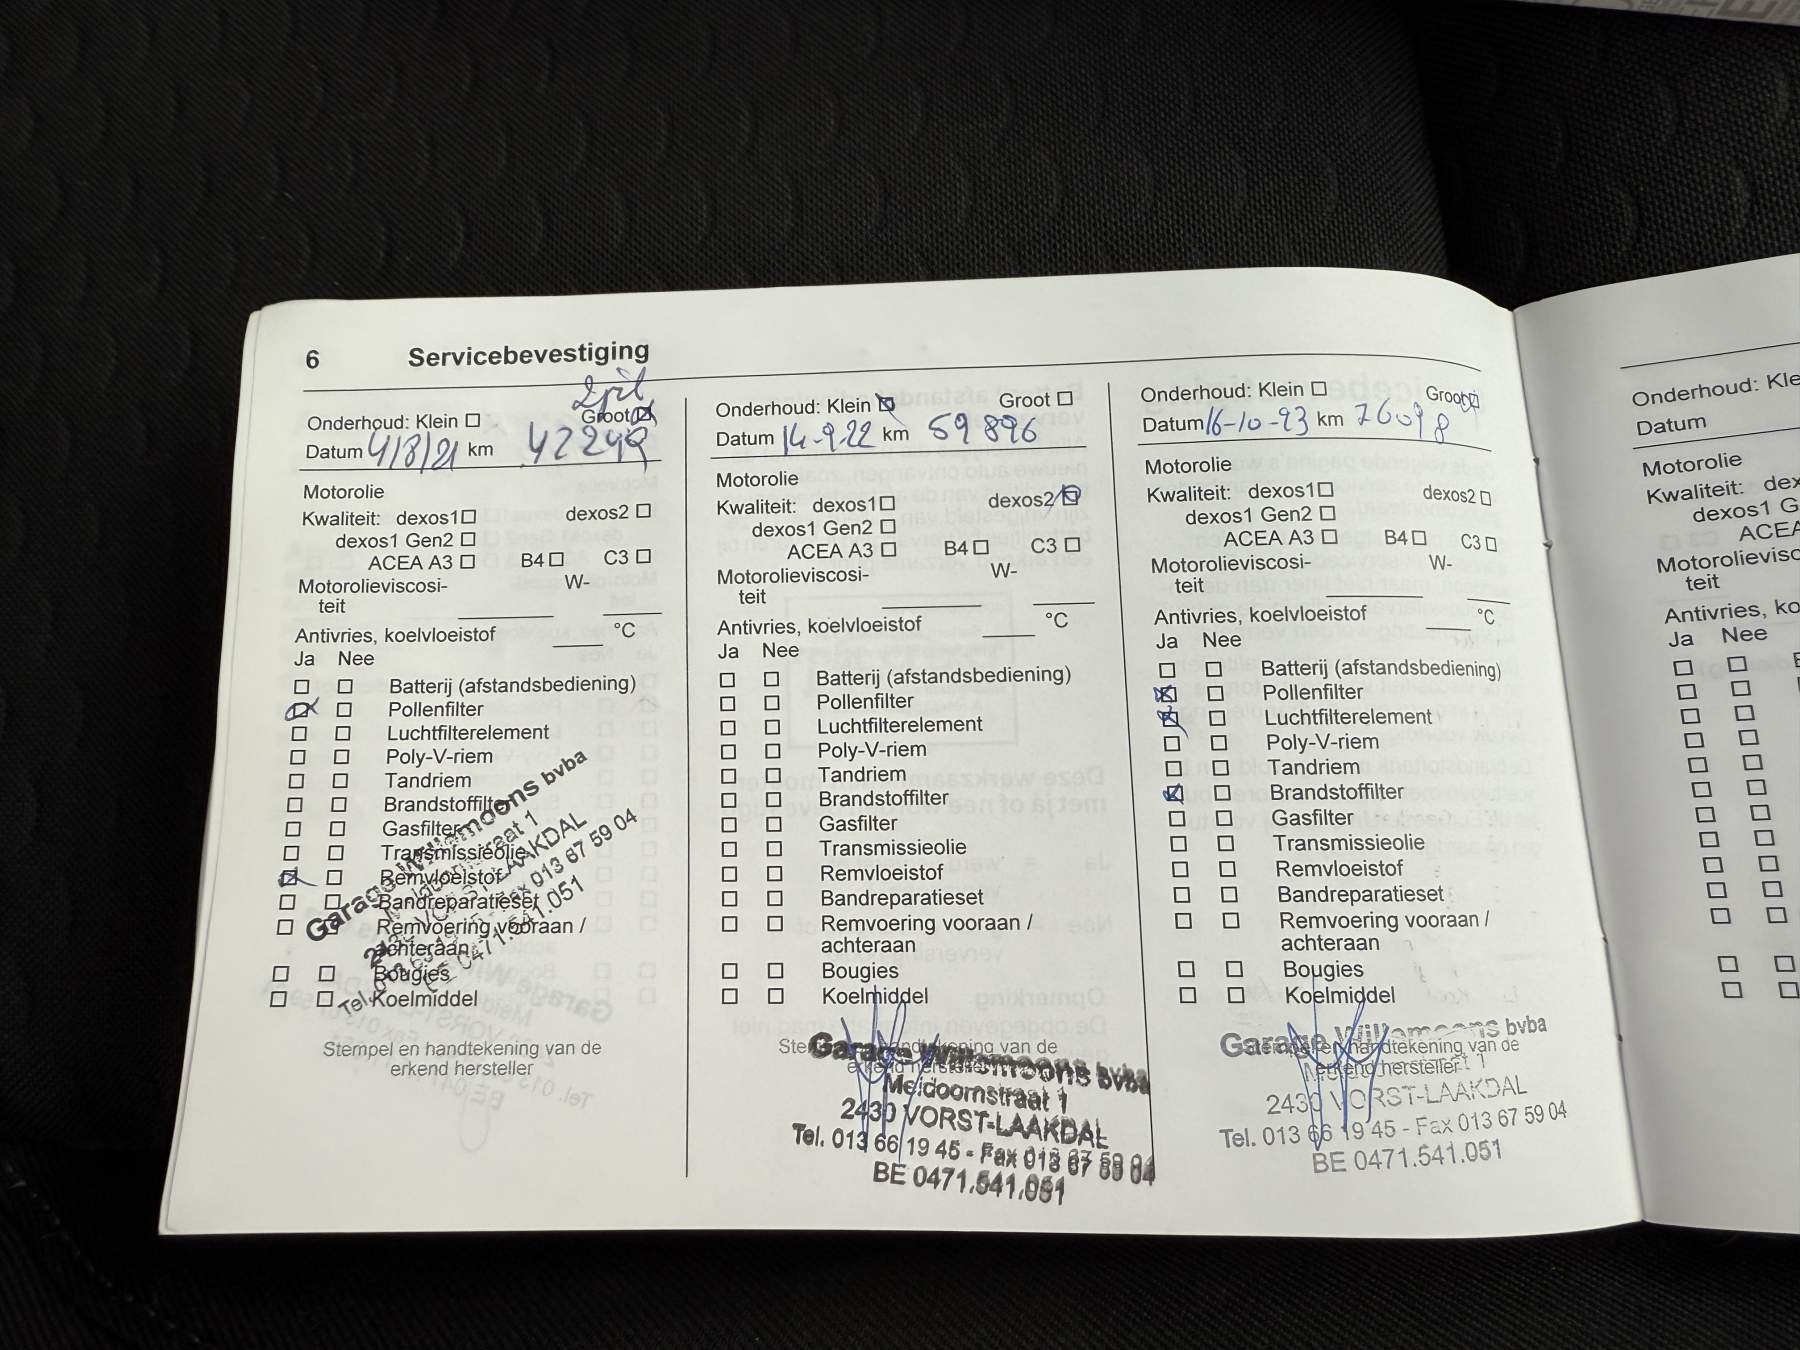 6 Servicebevestiging
Onderhoud: Klein Groot
Datum 4/8/21 km
Motorolie
Kwaliteit: dexos1 dexos2
dexos1 Gen2
ACEA A3 B4 C3
Motorolieviscosi- W-
teit
Antivries, koelvloeistof °C
Ja Nee
Batterij (afstandsbediening)
Pollenfilter
Luchtfilterelement
Poly-V-riem
Tandriem
Brandstoffilter
Gasfilter
Transmissieolie
Remvloeistof
Bandreparatieset
Remvoering vooraan /
achteraan
Bougies
Koelmiddel
Garage Willemoons bvba
LAAKDAL
013 67 59 04
BE 0471.541.051
Stempel en handtekening van de
erkend hersteller
Onderhoud: Klein Groot
Datum 14-9-22 km 59896
Motorolie
Kwaliteit: dexos1 dexos2
dexos1 Gen2
ACEA A3 B4 C3
Motorolieviscosi- W-
teit
Antivries, koelvloeistof °C
Ja Nee
Batterij (afstandsbediening)
Pollenfilter
Luchtfilterelement
Poly-V-riem
Tandriem
Brandstoffilter
Gasfilter
Transmissieolie
Remvloeistof
Bandreparatieset
Remvoering vooraan /
achteraan
Bougies
Koelmiddel
Garage Willemoons bvba
Meldoornstraat 1
2430 VORST-LAAKDAL
Tel. 013 66 19 45 - Fax 013 67 59 04
BE 0471.541.051
Onderhoud: Klein Groot
Datum km 76098
Motorolie
Kwaliteit: dexos1 dexos2
dexos1 Gen2
ACEA A3 B4 C3
Motorolieviscosi- W-
teit
Antivries, koelvloeistof °C
Ja Nee
Batterij (afstandsbediening)
Pollenfilter
Luchtfilterelement
Poly-V-riem
Tandriem
Brandstoffilter
Gasfilter
Transmissieolie
Remvloeistof
Bandreparatieset
Remvoering vooraan /
achteraan
Bougies
Koelmiddel
Garage Willemoons bvba
Stempel en handtekening van de
erkend hersteller
2430 VORST-LAAKDAL
Tel. 013 66 19 45 - Fax 013 67 59 04
BE 0471.541.051
Onderhoud: Kle
Datum
Motorolie
Kwaliteit: dex
dexos1 G
ACEA
Motorolievisc
teit
Antivries, ko
Ja Nee